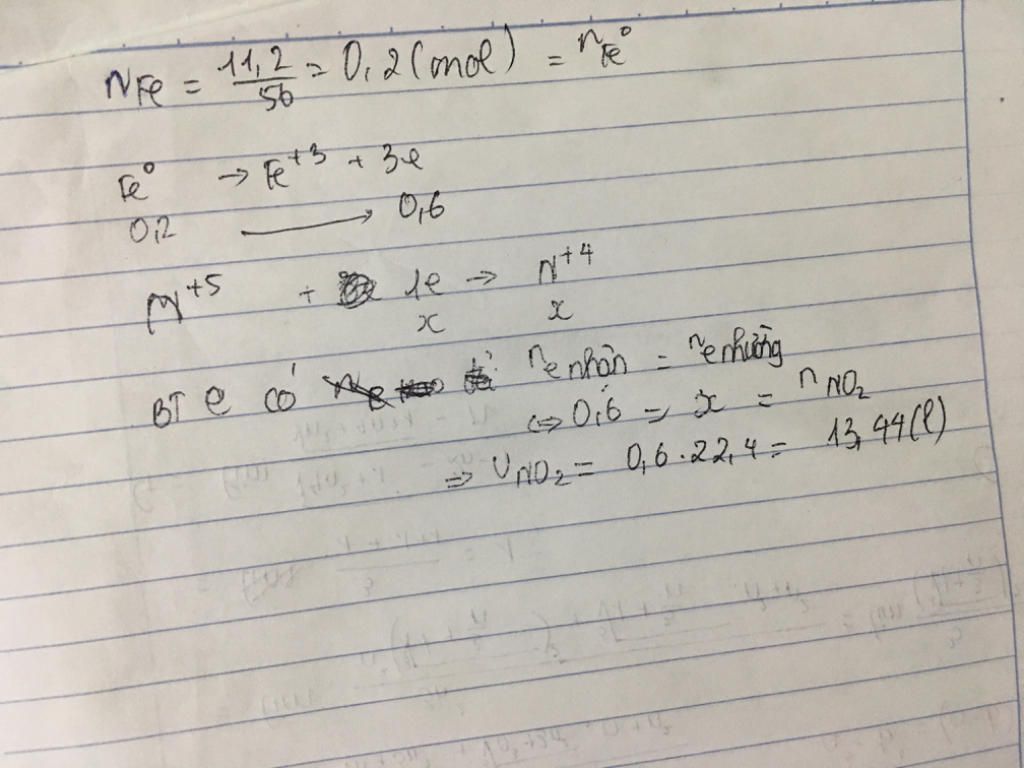 nFe = 11,2/56 = 0,2 (mol) = nFe⁰
Fe⁰ → Fe⁺³ + 3e
0,2 → 0,6
N⁺⁵ + 1e → N⁺⁴
x x
BT e có n e nhận = n e nhường
⇔ 0,6 = x = nNO₂
⇒ VNO₂ = 0,6.22,4 = 13,44(l)